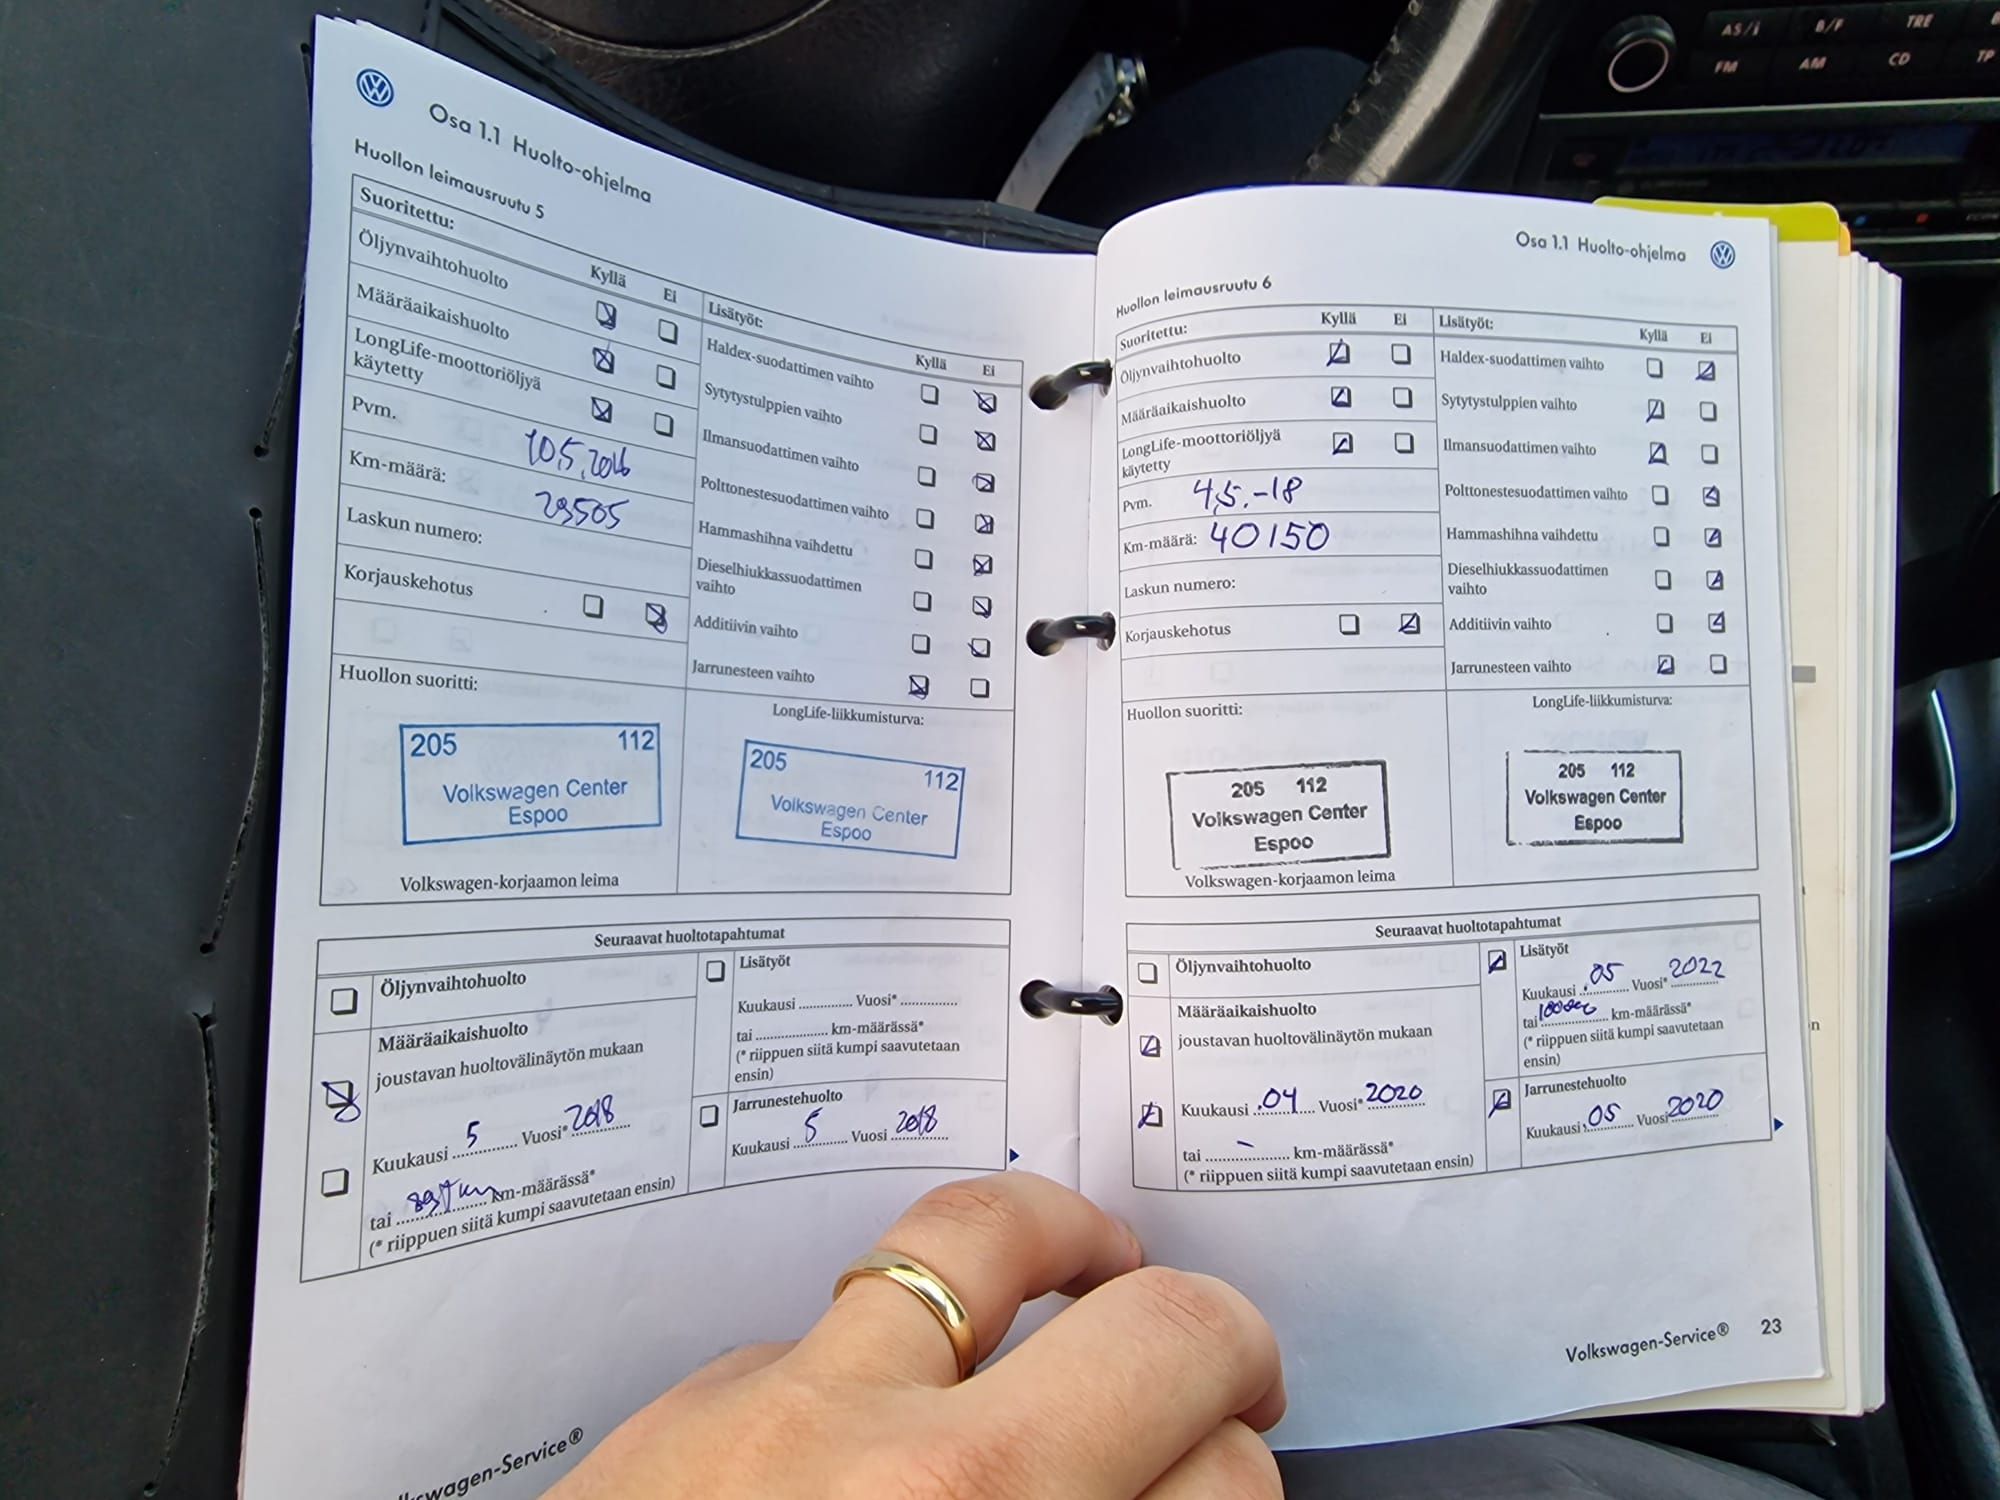 Osa 1.1 Huolto-ohjelma
Huollon leimausruutu 5
Suoritettu:
Kyllä Ei
Öljynvaihtohuolto
Määräaikaishuolto
LongLife-moottoriöljyä
käytetty
Pvm. 10.5.2016
Km-määrä: 29505
Laskun numero:
Korjauskehotus
Lisätyöt:
Kyllä Ei
Haldex-suodattimen vaihto
Sytytystulppien vaihto
Ilmansuodattimen vaihto
Polttonestesuodattimen vaihto
Hammashihna vaihdettu
Dieselhiukkassuodattimen
vaihto
Additiivin vaihto
Jarrunesteen vaihto
Huollon suoritti:
205 112
Volkswagen Center
Espoo
Volkswagen-korjaamon leima
LongLife-liikkumisturva:
205 112
Volkswagen Center
Espoo
Seuraavat huoltotapahtumat
Öljynvaihtohuolto
Määräaikaishuolto
joustavan huoltovälinäytön mukaan
Kuukausi 5 Vuosi* 2018
tai km-määrässä*
(* riippuen siitä kumpi saavutetaan ensin)
Lisätyöt
Kuukausi ............ Vuosi* ............
tai ............ km-määrässä*
(* riippuen siitä kumpi saavutetaan
ensin)
Jarrunestehuolto
Kuukausi 5 Vuosi 2018
swagen-Service®
Osa 1.1 Huolto-ohjelma
Huollon leimausruutu 6
Suoritettu:
Kyllä Ei
Öljynvaihtohuolto
Määräaikaishuolto
LongLife-moottoriöljyä
käytetty
Pvm. 4.5.-18
Km-määrä: 40150
Laskun numero:
Korjauskehotus
Lisätyöt:
Kyllä Ei
Haldex-suodattimen vaihto
Sytytystulppien vaihto
Ilmansuodattimen vaihto
Polttonestesuodattimen vaihto
Hammashihna vaihdettu
Dieselhiukkassuodattimen
vaihto
Additiivin vaihto
Jarrunesteen vaihto
Huollon suoritti:
205 112
Volkswagen Center
Espoo
Volkswagen-korjaamon leima
LongLife-liikkumisturva:
205 112
Volkswagen Center
Espoo
Seuraavat huoltotapahtumat
Öljynvaihtohuolto
Määräaikaishuolto
joustavan huoltovälinäytön mukaan
Kuukausi 04 Vuosi* 2020
tai - km-määrässä*
(* riippuen siitä kumpi saavutetaan ensin)
Lisätyöt
Kuukausi 05 Vuosi* 2022
tai km-määrässä*
(* riippuen siitä kumpi saavutetaan
ensin)
Jarrunestehuolto
Kuukausi 05 Vuosi 2020
Volkswagen-Service® 23
AS/i B/F TRE
FM AM CD TP